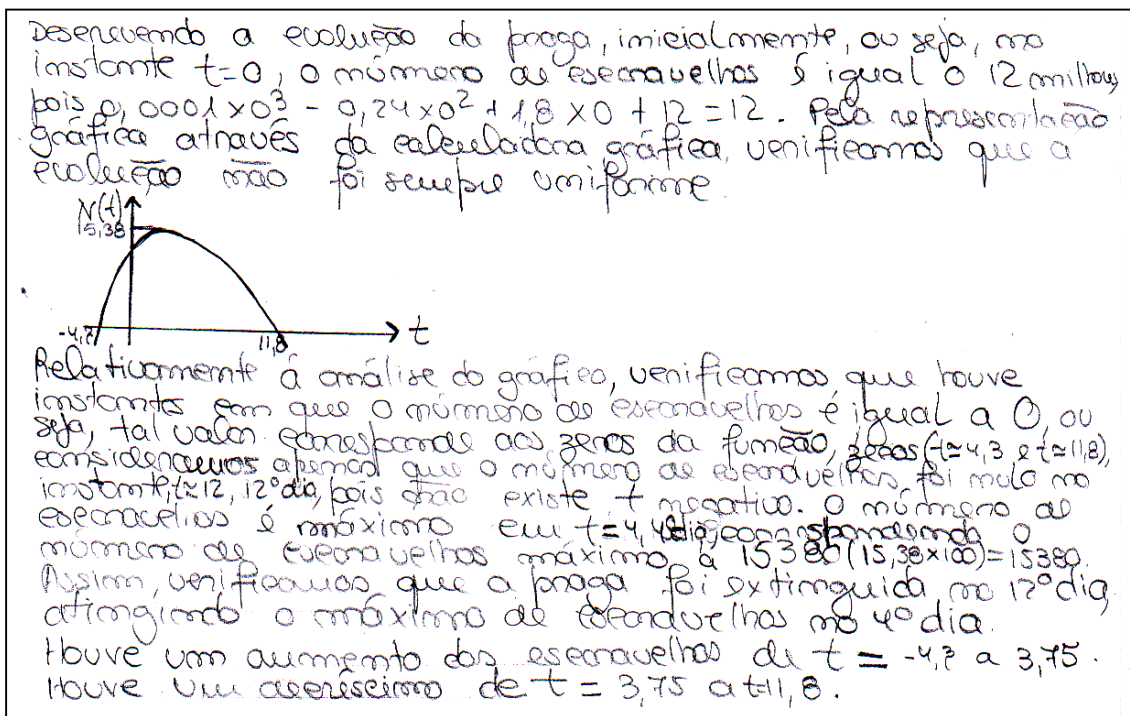 Descrevendo a evolução da praga, inicialmente, ou seja, no
instante t=0, o número de escaravelhos é igual o 12 milhões,
pois 0,0001 x 0³ - 0,24 x 0² + 1,8 x 0 + 12 = 12. Pela representação
gráfica através da calculadora gráfica, verificamos que a
evolução não foi sempre uniforme.
N(t)
15,38
-4,3
11,8
t
Relativamente á análise do gráfico, verificamos que houve
instantes em que o número de escaravelhos é igual a 0, ou
seja, tal valor corresponde aos zeros da função, zeros (-t≃4,3 e t≃11,8),
consideramos apenas que o número de escaravelhos foi nulo no
instante, t≃12, 12º dia, pois não existe t negativo. O número de
escaravelhos é máximo em t=4, 4º dia, correspondendo o
número de escaravelhos máximo à 15380 (15,38x100)=15380.
Assim, verificamos que a praga foi extinguida, no 12º dia,
atingindo o máximo de escaravelhos no 4º dia.
Houve um aumento dos escaravelhos de t = -4,3 a 3,75.
Houve um decréscimo de t = 3,75 a t=11,8.